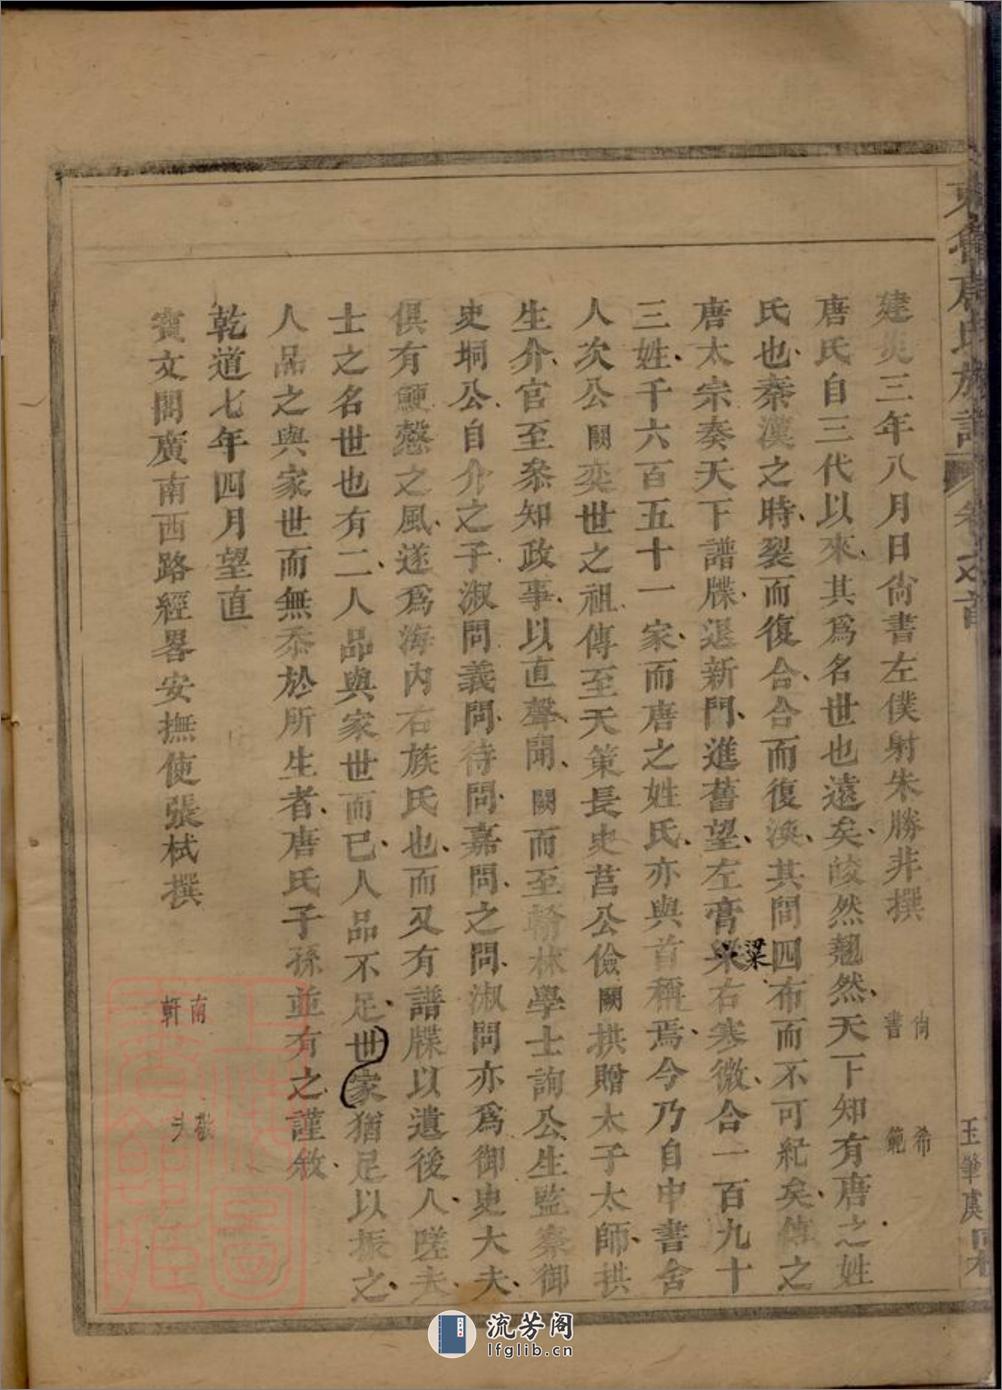 東魯唐氏族譜 卷之首
建炎三年八月日尙書左僕射朱勝非撰
尙書
希範
唐氏自三代以來其爲名世也遠矣峻然翹然天下知有唐之姓
氏也秦漢之時裂而復合合而復渙其間四布而不可紀矣傳之
唐太宗奏天下譜牒退新門進舊望左膏粱右寒微合一百九十
粱
三姓千六百五十一家而唐之姓氏亦與首稱焉今乃自中書舍
人次公闕奕世之祖傳至天策長史莒公儉闕拱贈太子太師拱
生介官至叅知政事以直聲聞闕而至翰林學士詢公生監察御
史坰公自介之子淑問義問待問嘉問之問淑問亦爲御史大夫
俱有鯁慤之風遂爲海內右族氏也而又有譜牒以遺後人嗟夫
士之名世也有二人品與家世而已人品不足世家猶足以振之
人品之與家世而無忝於所生者唐氏子孫並有之謹敘
乾道七年四月望直
寳文閣廣南西路經畧安撫使張栻撰
南軒
敬夫
王肇虞
流芳阁
lfglib.cn